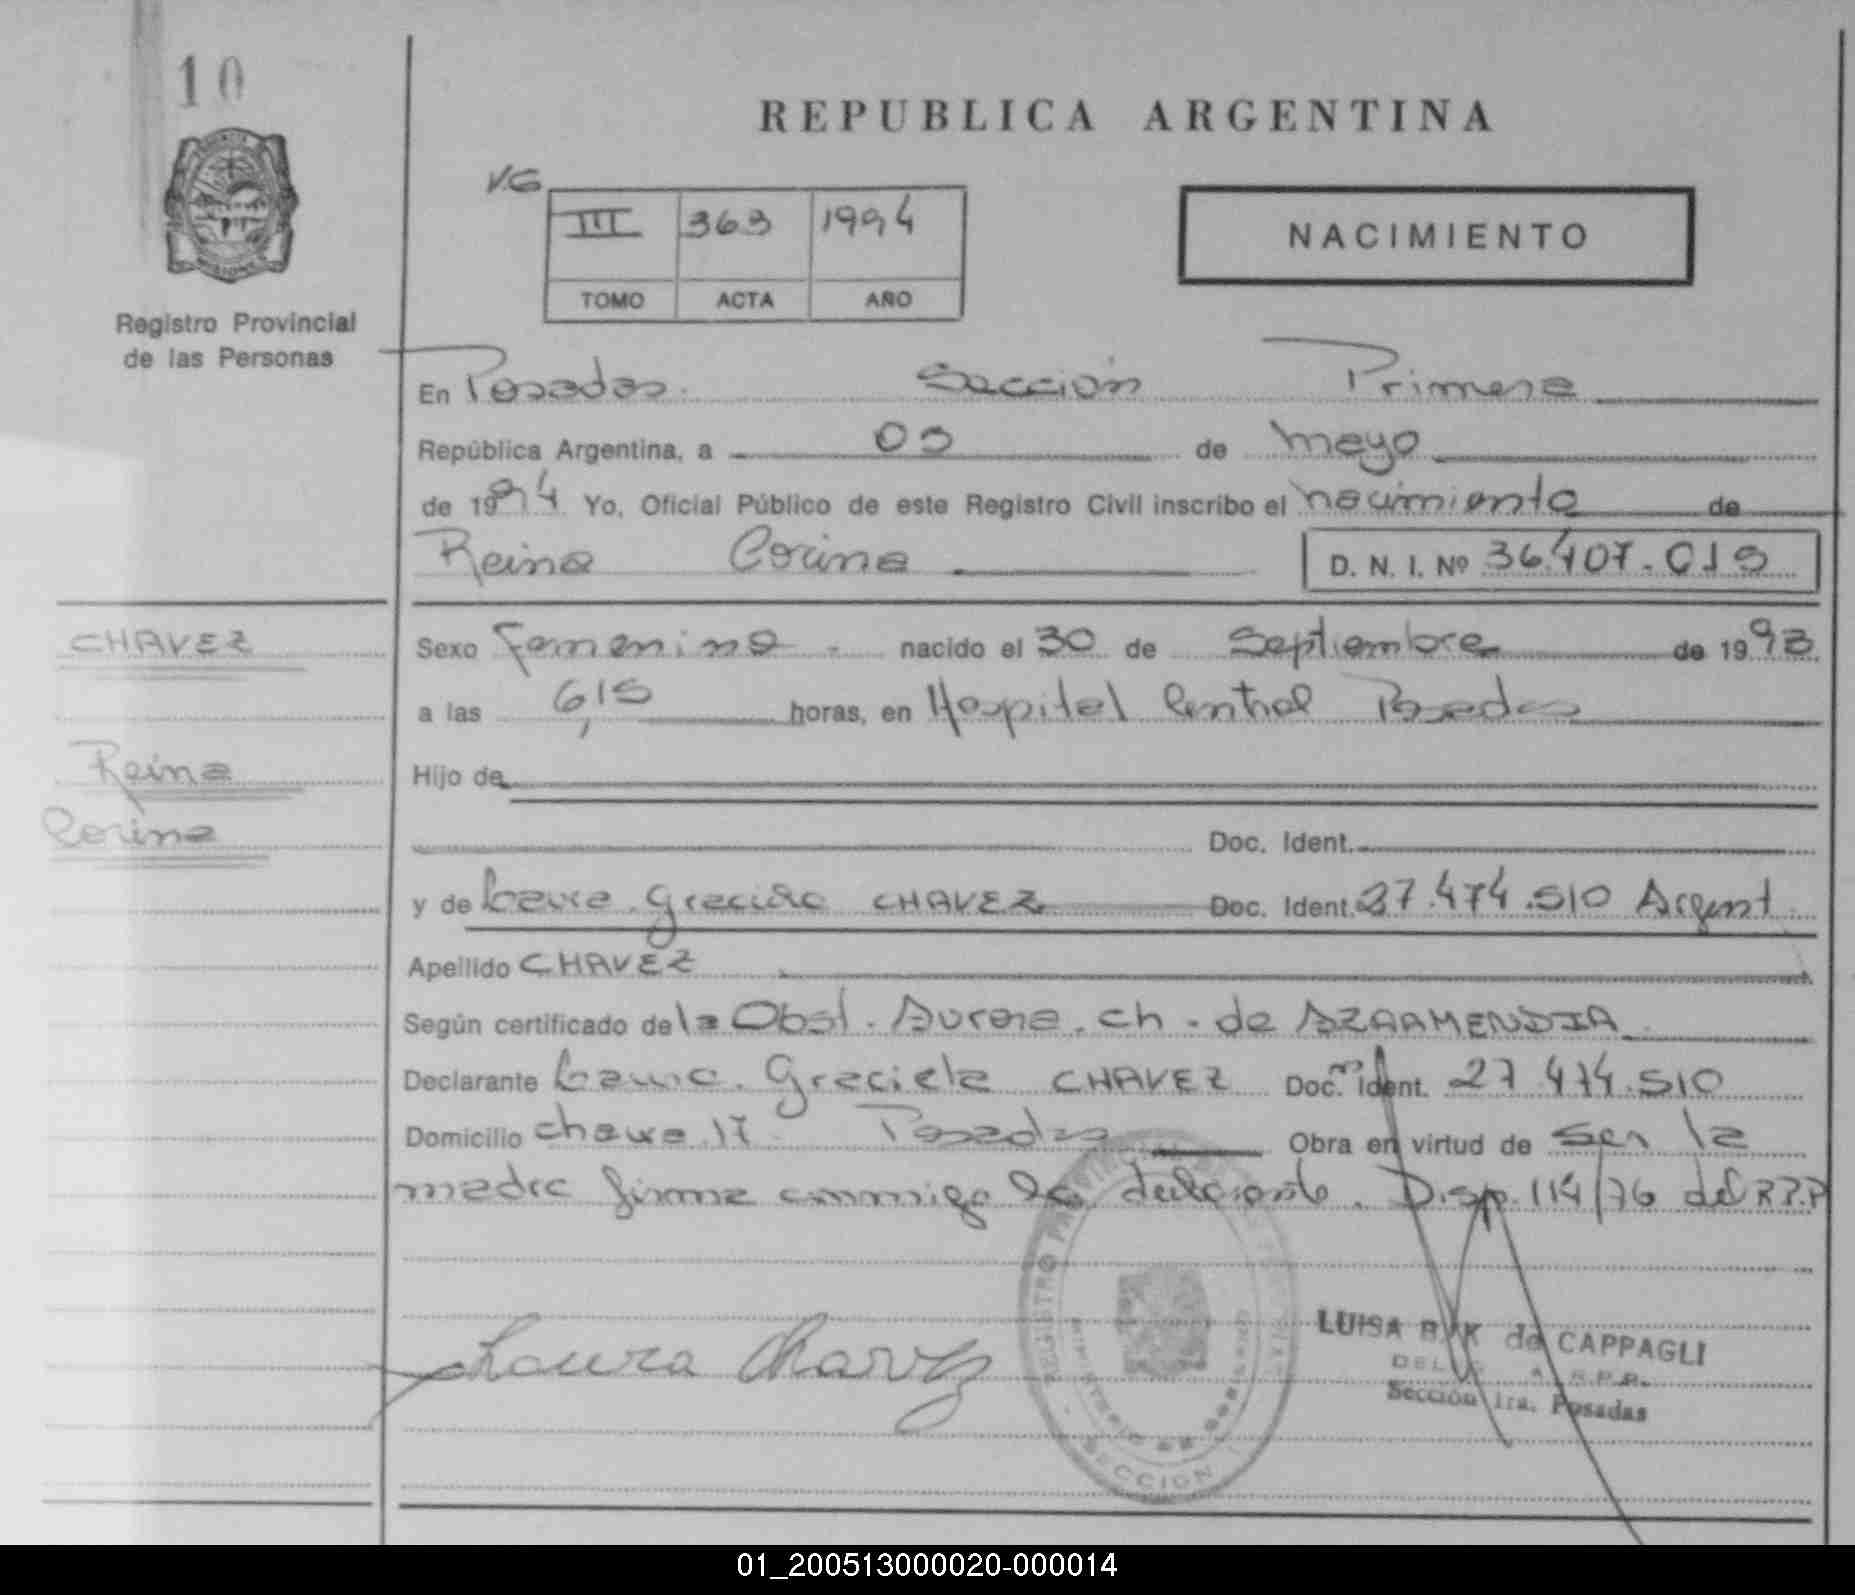 10
REPUBLICA ARGENTINA
V.G
III 363 1994
TOMO ACTA AÑO
NACIMIENTO
PROVINCIA
MISIONES
Registro Provincial
de las Personas
En Posadas. Sección Primera
República Argentina, a 03 de mayo
de 1994 Yo, Oficial Público de este Registro Civil inscribo el nacimiento de
Reina Corina D. N. I. Nº 36.407.019
CHAVEZ
Sexo femenino - nacido el 30 de Septiembre de 1993
a las 6,15 horas, en Hospital Central Posadas
Reina
Hijo de
Corina
Doc. Ident.
y de Laura Graciela CHAVEZ Doc. Ident. 27.474.510 Argent.
Apellido CHAVEZ
Según certificado de la Obst. Aurora. ch. de AZARMENDIA
Declarante Laura Graciela CHAVEZ Doc. Ident. 27.474.510
Domicilio 17. Posadas Obra en virtud de ser la
madre firma conmigo la declarante. Disp. 114/76 del R.P.P
REGISTRO PROVINCIAL DE LAS PERSONAS
SECCION
Laura Chavez
LUISA de CAPPAGLI
R.P.P.
Sección 1ra. Posadas
01_200513000020-000014